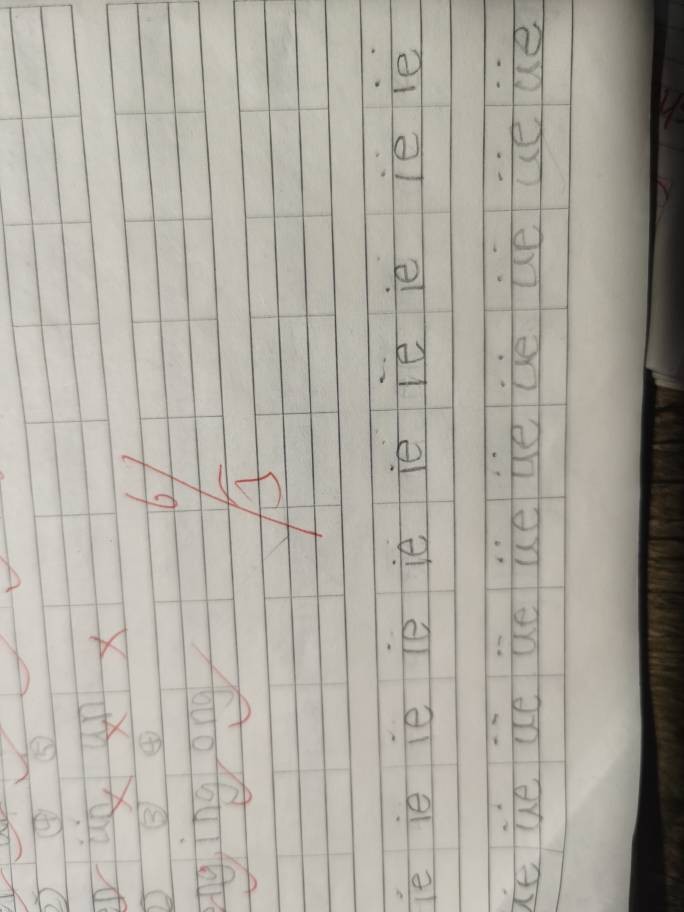 ④ ⑤
ün un
③ ④
ing ong
ie ie ie ie ie ie ie ie ie ie
üe üe üe üe üe üe üe üe üe üe